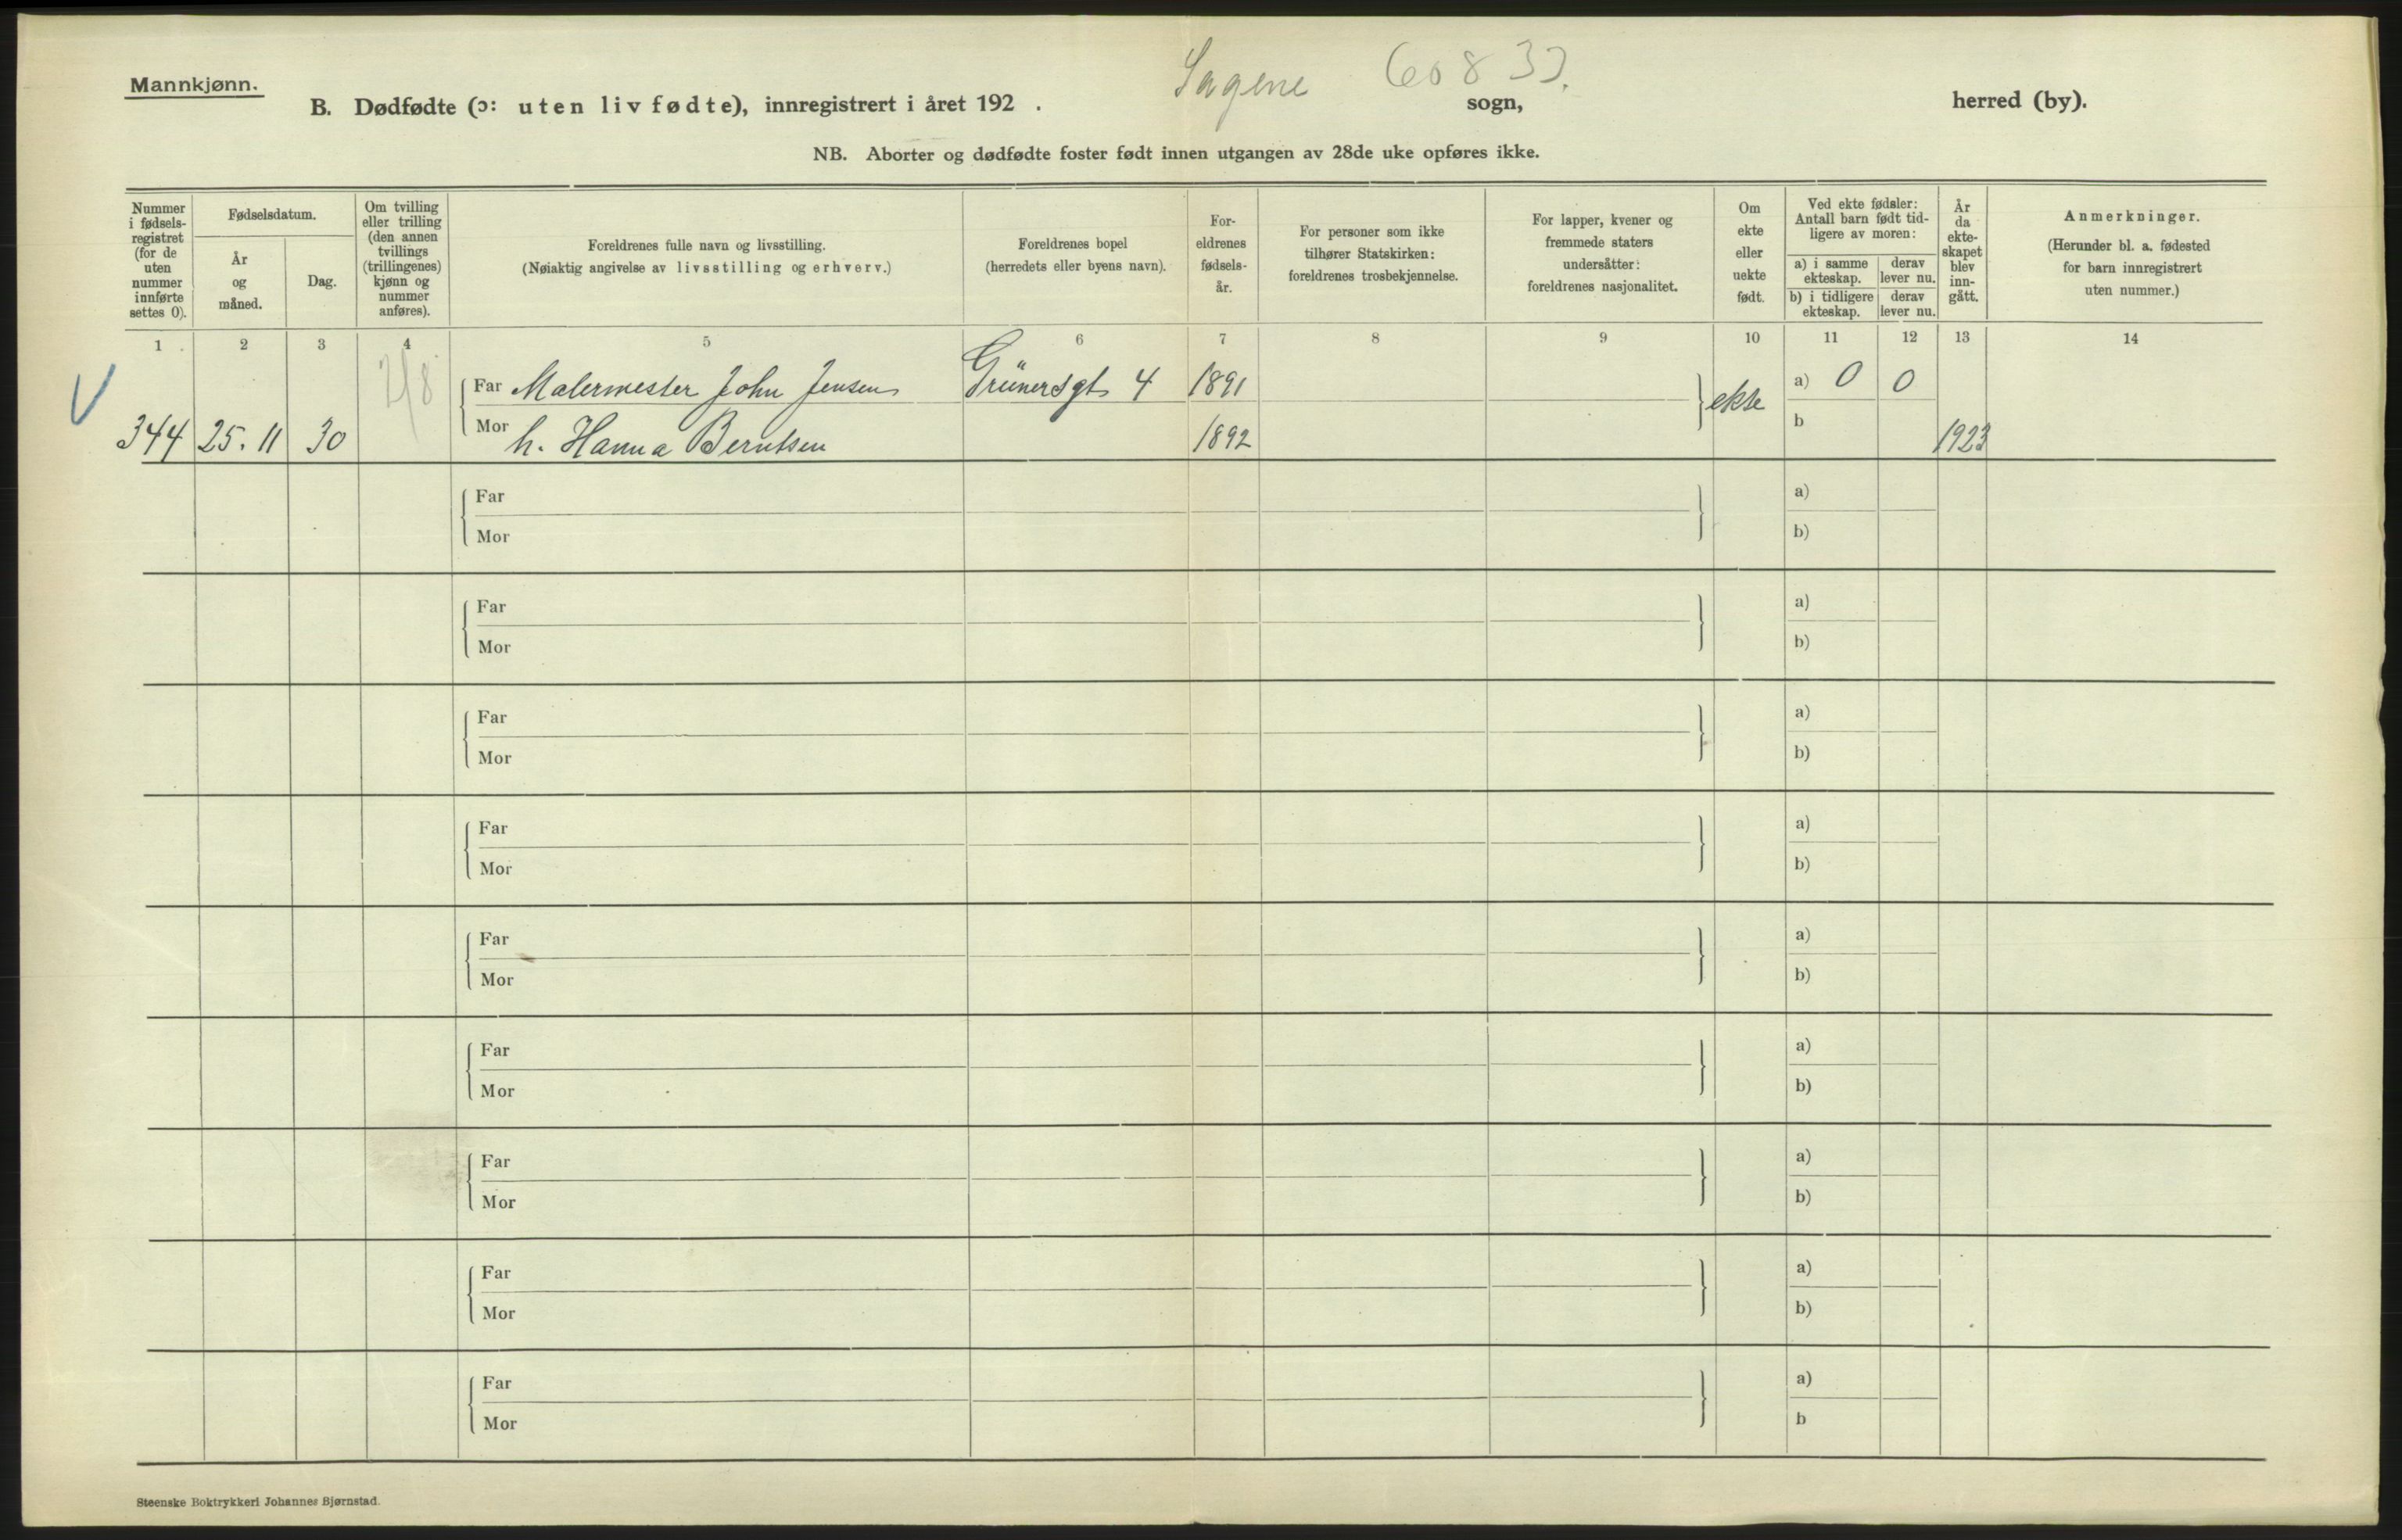 Mannkjønn.
Sagene 60833.
B. Dødfødte (ɔ: uten liv fødte), innregistrert i året 192 . sogn, herred (by).
NB. Aborter og dødfødte foster født innen utgangen av 28de uke opføres ikke.
Nummer i fødsels-registret (for de uten nummer innførte settes 0).
Fødselsdatum.
År og måned.
Dag.
Om tvilling eller trilling (den annen tvillings (trillingenes) kjønn og nummer anføres).
Foreldrenes fulle navn og livsstilling.
(Nøiaktig angivelse av livsstilling og erhverv.)
Foreldrenes bopel
(herredets eller byens navn).
For-eldrenes fødsels-år.
For personer som ikke tilhører Statskirken: foreldrenes trosbekjennelse.
For lapper, kvener og fremmede staters undersåtter: foreldrenes nasjonalitet.
Om ekte eller uekte født.
Ved ekte fødsler: Antall barn født tid-ligere av moren:
a) i samme ekteskap. derav lever nu.
b) i tidligere ekteskap. derav lever nu.
År da ekte-skapet blev inn-gått.
Anmerkninger.
(Herunder bl. a. fødested for barn innregistrert uten nummer.)
1 2 3 4 5 6 7 8 9 10 11 12 13 14
V 2/8 Far Malermester John Jensen Grünersgt 4 1891 ekte a) 0 0
344 25. 11 30 Mor h. Hanna Berntsen 1892 b 1923
Far a)
Mor b)
Far a)
Mor b)
Far a)
Mor b)
Far a)
Mor b)
Far a)
Mor b)
Far a)
Mor b)
Far a)
Mor b)
Far a)
Mor b)
Far a)
Mor b
Steenske Boktrykkeri Johannes Bjørnstad.